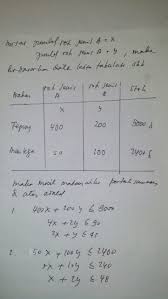 misal jumlah roti jenis A = x
jumlah roti jenis A = y, maka
berdasarkan data tabulasi sbb
Bahan | roti jenis A | roti jenis B | Stok
x | y
Tepung | 400 | 200 | 9000
mentega | 50 | 100 | 2400
maka model matematika
1. 400x + 200y ≤ 9000
4x + 2y ≤ 90
2x + y ≤ 45
2. 50x + 100y ≤ 2400
5x + 10y ≤ 240
x + 2y ≤ 48